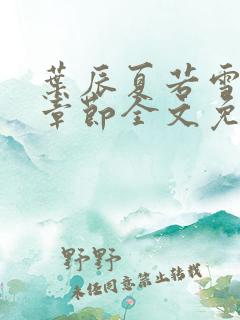 葉辰夏若雪
章節全文免
野野
未经同意禁止转载